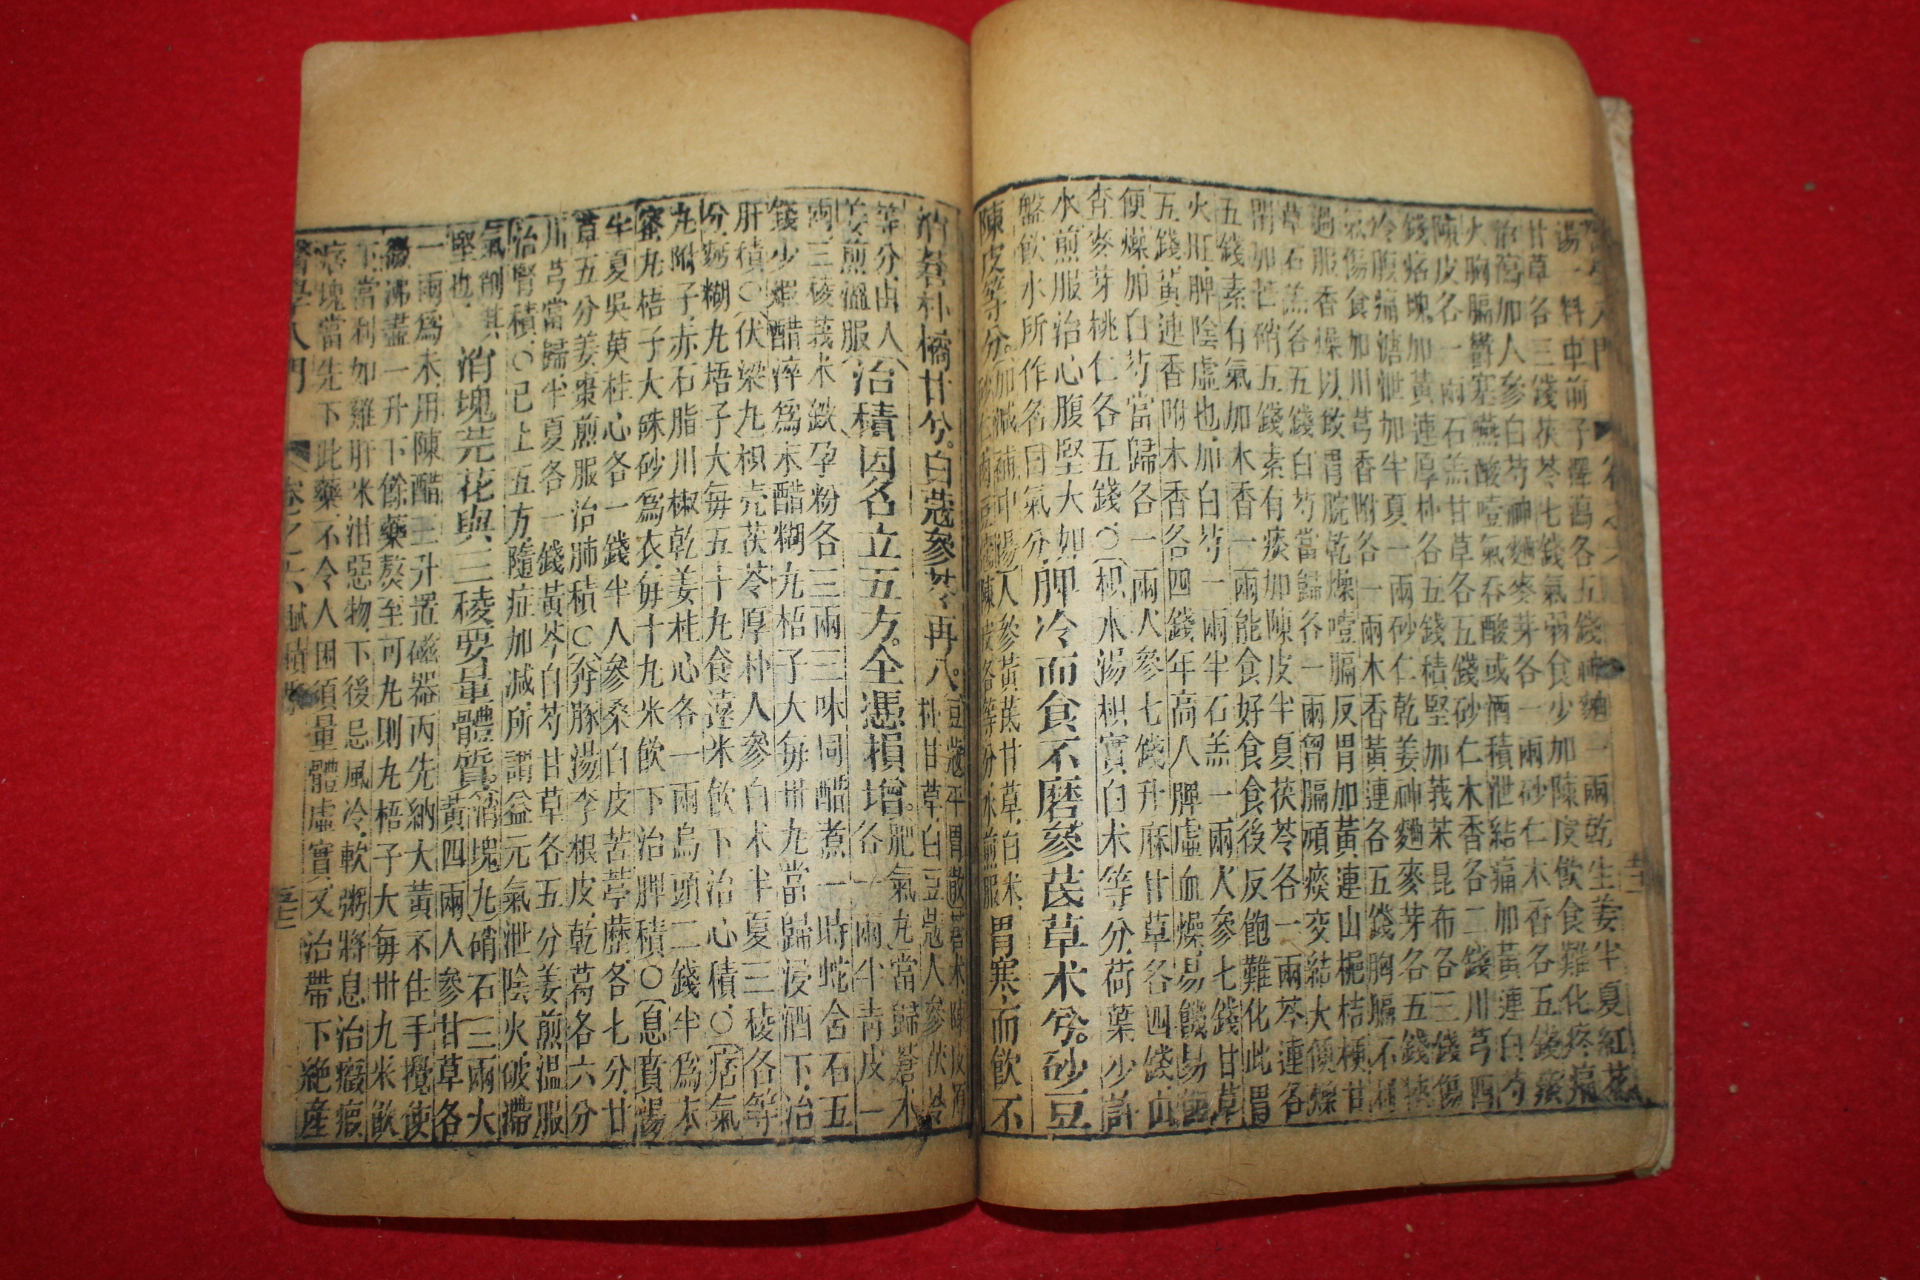 湯一料車前子澤瀉各五錢神麯一兩乾生姜半夏紅花
甘草各三錢茯苓七錢氣弱食少加陳皮飲食難化疼痛
泄瀉加人參白芍神麯麥芽各一兩砂仁木香各五錢痰
火胸膈鬱塞嚥酸噎氣吞酸或酒積泄結痛加黃連白芍
陳皮各一兩石羔甘草各五錢砂仁木香各二錢川芎
錢痞塊加黃連厚朴各五錢積堅加莪茱昆布各三錢傷
冷腹痛溏泄加半夏一兩砂仁乾姜神麯麥芽各五錢
氣傷食加川芎香附各一兩木香黃連各五錢胸膈不
過服香燥以致胃脘乾燥噎膈反胃加黃連山梔桔梗甘
草石羔各五錢白芍當歸各一兩胷膈頑痰交結大便燥
閉加芒硝五錢素有痰加陳皮半夏茯苓各一兩芩連各
五錢素有氣加木香一兩能食好食食後反飽難化此胃
火旺脾陰虛也加白芍一兩半石羔一兩人參七錢甘草
五錢黃連香附木香各四錢年高人脾虛血燥易饑易
便燥加白芍當歸各一兩人參七錢升麻甘草各四錢
查麥芽桃仁各五錢〇枳朮湯枳實白朮等分荷葉少許
水煎服治心腹堅大如
盤飲水所作名曰氣分脾冷而食不磨蔘芪草朮兮砂豆
陳皮等分加減補中湯人參黃芪甘草白朮
水煎服胃寒而飲不
朴橘甘兮白蔻參苓再入
豆蔻平胃散蒼朮陳皮厚
朴甘草白豆蔻人參茯苓
等分由人
姜煎溫服治積因名立五方全憑損增肥氣丸當歸蒼朮
各一兩半青皮一
兩三稜莪朮鉄孕粉各三兩三味同醋煮一時蛇含石五
錢少煆醋淬爲末醋糊丸梧子大每卅丸當歸浸酒下治
肝積〇伏梁丸枳壳茯苓厚朴人參白朮半夏三稜各等
分麪糊丸梧子大每五十丸食遠米飲下治心積〇痞氣
丸附子赤石脂川椒乾姜桂心各一兩烏頭二錢半爲末
蜜丸梧子大硃砂爲衣每十丸米飲下治脾積〇息賁湯
半夏吳茰桂心各一錢半人參桑白皮苦葶藶各七分甘
草五分姜棗煎服治肺積〇奔豚湯李根皮乾葛各六分
川芎當歸半夏各一錢黃芩白芍甘草各五分姜煎温服
治腎積〇已上五方隨症加减所謂益元氣泄陰火破滯
氣削其
堅也消塊芫花與三稜要量體質消塊丸硝石三兩大
黃四兩人參甘草各
一兩爲末用陳醋三升置磁器内先納大黃不住手攪使
微沸盡一升下餘藥熬至可丸則丸梧子大每卅丸米飲
下當利如雞肝米泔惡物下後忌風冷軟粥將息治癥瘕
痞塊當先下此藥不令人困須量體虛實又治帶下絶產
醫學入門 卷之六 積